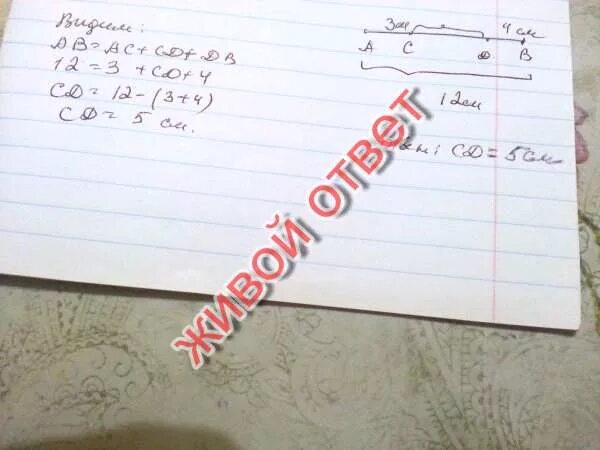 Видим:
AB = AC + CD + DB
12 = 3 + CD + 4
CD = 12 - (3+4)
CD = 5 см.
3см 4 см
A C D B
12 см
CD = 5 см
ЖИВОЙ ОТВЕТ